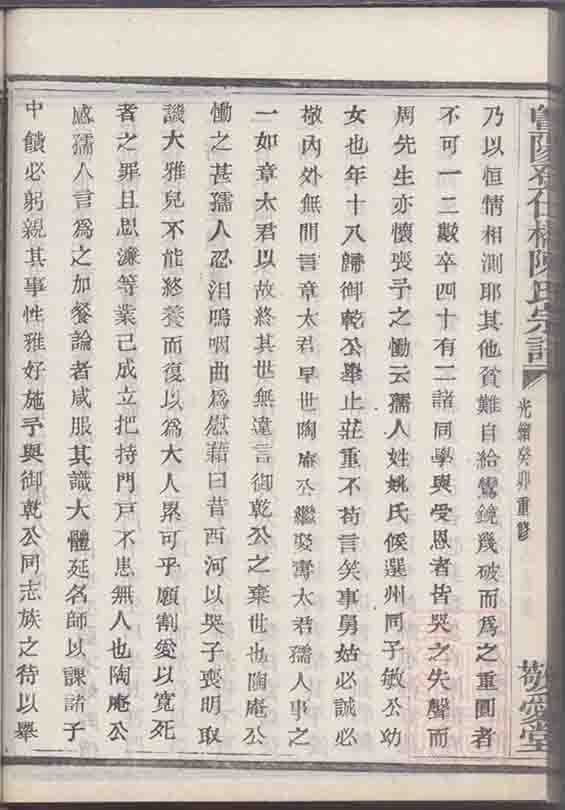 暨陽 宅 橋陳氏宗譜
光緒癸卯重修
敬愛堂
乃以恒情相測耶其他貧難自給鸞鏡幾破而爲之重圓者
不可一二數卒四十有二諸同學與受恩者皆哭之失聲而
周先生亦懷喪予之慟云孺人姓姚氏候選州同子敏公幼
女也年十八歸御乾公舉止莊重不苟言笑事舅姑必誠必
敬內外無間言章太君早世陶庵公繼娶壽太君孺人事之
一如章太君以故終其世無違言御乾公之棄世也陶庵公
慟之甚孺人忍泪嗚咽曲爲慰藉曰昔西河以哭子喪明取
譏大雅兒不能終養而復以為大人累可乎願割愛以寬死
者之罪且思濂等業已成立把持門戸不患無人也陶庵公
感孺人言爲之加餐論者咸服其識大體延名師以課諸子
中饋必躬親其事性雅好施予與御乾公同志族之待以舉